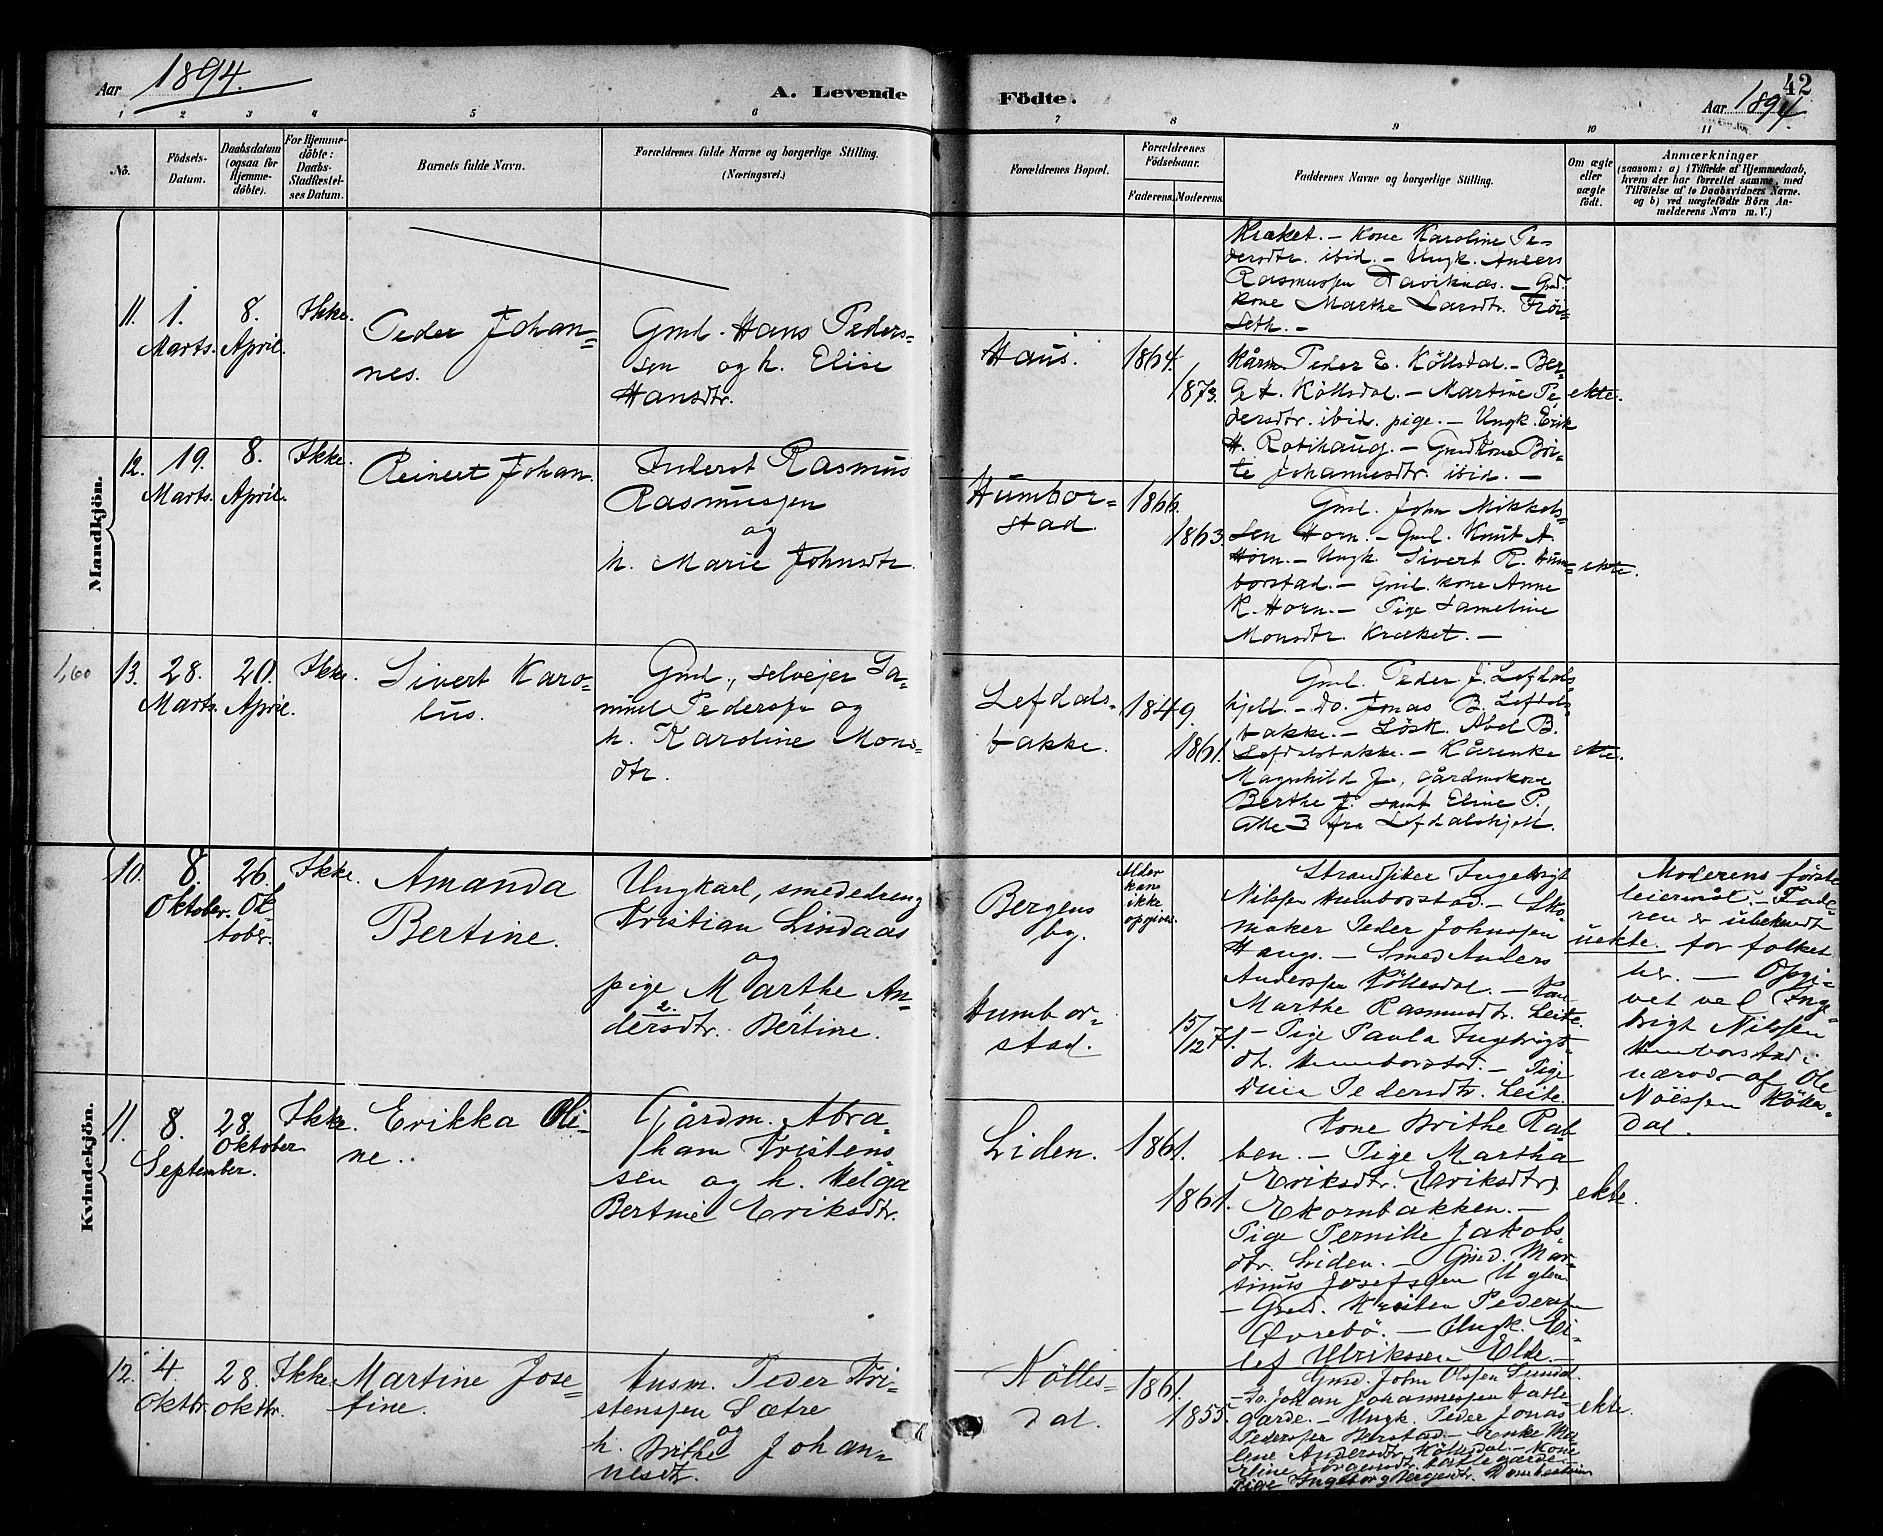 Aar 1894.
A. Levende
Födte.
Aar 1894.
42
1 2 3 4 5 6 7 8 9 10 11
No.
Födsels-
Datum.
Daabsdatum
(ogsaa for
Hjemme-
döbte).
For Hjemme-
döbte:
Daabs-
Stadfæstel-
ses Datum.
Barnets fulde Navn.
Forældrenes fulde Navne og borgerlige Stilling.
(Næringsvei.)
Forældrenes Bopæl.
Forældrenes
Födselsaar.
Faderens. Moderens.
Faddernes Navne og borgerlige Stilling.
Om ægte
eller
uægte
födt.
Anmærkninger
(saasom: a) i Tilfælde af Hjemmedaab,
hvem der har forrettet samme, med
Tilföielse af to Daabsvidners Navne.
og b) ved uægtefödte Börn An-
melderens Navn m. V.)
Mandkjön.
Kræket. – Kone Karoline Pe-
dersdtr. ibid. – Ungk. Anders
Rasmussen Daviknæs. – Gmd.
kone Marthe Larsdtr.
seth. –
11.
1.
Marts.
8.
April.
Ikke.
Peder Johan-
nes.
Gml. Hans Peders-
sen og h. Elise
Hansdtr.
Haus.
1864.
1873.
Kårm. Peder E. Köllsdal. – Ber-
Köllsdal. – Martine Pe-
dersdtr. ibid. pige. – Ungk. Erik
H. Rotihaug. – Gmdkone Bri-
te Johannesdtr. ibid. –
ekte.
12.
19.
Marts.
8.
April.
Ikke.
Reinert Johan.
Inderst Rasmus
Rasmussen
og
h. Marie Johnsdtr.
Humbor-
stad.
1866.
1863.
Gml. John Mikkels-
sen Horn. – Gml. Knut A.
Horn. – Ungk. Sivert R. Hum-
borstad. – Gml. kone Anne
K. Horn. – Pige Lameline
Monsdtr. Kræket. –
ekte.
1,60
13.
28.
Marts.
20.
April.
Ikke.
Sivert Karo-
lus.
Gml., selvejer Sa-
muel Pederssen og
h. Karoline Mons-
dtr.
Lefdals-
bakke.
1849.
1861.
Gml. Peder J. Lefdals-
hjell. – Do. Jonas B. Lefdals-
bakke. – Lösk. Abel B.
Lefdalsbakke. – Kårenke
Magnhild J., gårdmskone
Berthe J. samt Eline P.,
alle 3 fra Lefdalshjell.
ekte.
Kvindekjön.
10.
8.
Oktober.
26.
Ok-
tober.
Ikke.
Amanda
Bertine.
Ungkarl, smededreng
Kristian Lindaas
og
pige Marthe An-
dersdtr. Bertine.
2.
Bergens
by.
Humbor-
stad.
Alder
kan
ikke
opgives.
15/12 71.
Strandsitter Ingebrigt
Nilssen Humborstad. – Sko-
maker Peder Johnssen
Haugs. – Smed Anders
Anderssen Köllesdal. – Kone
Marthe Rasmusdtr. Leite.
– Pige Paula Ingebrigts-
dtr. Humborstad. – Pige
Pedersdtr. Leite.
uekte.
Moderens förste
leiermål. – Fade-
ren er ubekendt
for folket
her. – Opgi-
vet ved Inge-
brigt Nilssen
Humborstad i
nærvær af Ole
Nilssen Kölles-
dal.
11.
8.
September.
28.
Oktober
Ikke.
Erikka Oli-
ne.
Gårdm. Abra-
ham Kristens-
sen og h. Helga
Bertine Eriksdtr.
Liden.
1861.
1861.
Kone Brithe Rab-
ben. – Pige Martha
Eriksdtr. (Eriksdtr)
Ekornbakken. –
Pige Pernille Jakobs-
dtr. Liden. – Gmd. Mar-
tinus Josefssen Uglen
– Gmd. Kristen Pederssen
Övrebö. – Ungk. Ei-
lef Ulrikssen Elde. –
ekte.
12.
4.
Oktbr.
28.
Oktbr.
Ikke.
Martine Jose-
fine.
Husm. Peder Kri-
stenssen Sætre
og
h. Brithe Johan-
nesdtr.
Kölles-
dal.
1861.
1855.
Gmd. John Olssen Sunddal
– Do. Johan Johannessen
gårde. – Ungk. Peder Jonas
Pederssen – Enke Ma-
lene Andersdtr. Köllesdal. – Kone
Eline Jörgensdtr.
Pige Ingeborg Dombestein
ekte.